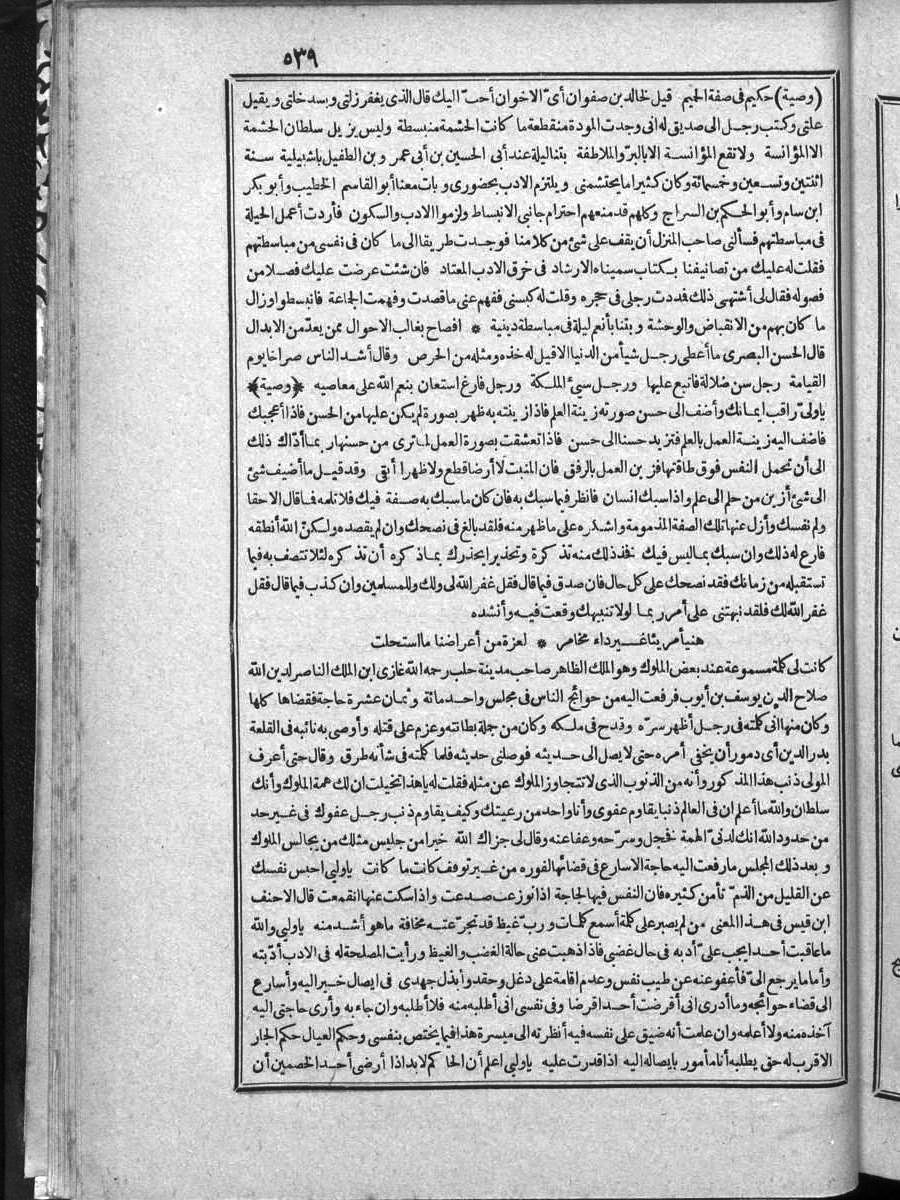 ٥٣٩
(وصية) حكيم فى صفة الحميم قيل لخالد بن صفوان أىّ الاخوان أحبّ اليك قال الذى يغفر زلتى ويسد خلتى ويقيل
علتى وكتب رجل الى صديق له انى وجدت المودة منقطعة ما كانت الحشمة منبسطة وليس يزيل سلطان الحشمة
الا المؤانسة ولا تقع المؤانسة الا بالبرّ والملاطفة بتنا ليلة عند أبى الحسين بن أبى عمر وبن الطفيل باشبيلية سنة
اثنتين وتسعين وخمسمائة وكان كثيرا ما يحتشمنى ويلتزم الادب بحضورى وبات معنا أبو القاسم الخطيب وأبو بكر
ابن سام وأبو الحكم بن السراج وكلهم قد منعهم احترام جانبى الانبساط ولزموا الادب والسكون فأردت أعمل الحيلة
فى مباسطتهم فسألنى صاحب المنزل أن يقف على شئ من كلامنا فوجدت طريقا الى ما كان فى نفسى من مباسطتهم
فقلت له عليك من تصانيفنا بكتاب سميناه الارشاد فى خرق الادب المعتاد فان شئت عرضت عليك فصلا من
فصوله فقال لى أشتهى ذلك فددت رجلى فى حجره وقلت له كبسنى ففهم عنى ما قصدت وفهمت الجاعة فانبسطوا وزال
ما كان بهم من الانقباض والوحشة وبتنا بأنعم ليلة فى مباسطة دينية * افصاح بغالب الاحوال ممن يعدّ من الابدال
قال الحسن البصرى ما أعطى رجل شيأ من الدنيا الا قيل له خذه ومثله من الحرص وقال أشد الناس صراخا يوم
القيامة رجل سن ضلالة فاتبع عليها ورجل سيئ الملكة ورجل فارغ استعان بنعم الله على معاصيه ﴿وصية﴾
ياولىّ راقب ايمانك وأضف الى حسن صورته زينة العلم فاذا زينته به ظهر بصورة لم يكن عليها من الحسن فاذا أعجبك
فاضف اليه زينة العمل بالعلم فتزيد حسنا الى حسن فاذا تعشقت بصورة العمل لما ترى من حسنها ربما أدّاك ذلك
الى أن تحمل النفس فوق طاقتها فزين العمل بالرفق فان المنبت لا أرضا قطع ولا ظهرا أبقى وقد قيل ما أضيف شئ
الى شئ أزين من حلم الى علم واذا سبك انسان فانظر فيما سبك به فان كان ما سبك به صفة فيك فلا تلمه فما قال الا حقا
ولم نفسك وأزل عنها تلك الصفة المذمومة واشكره على ما ظهر منه فلقد بالغ فى نصحك وان لم يقصده ولكنّ الله أنطقه
فارع له ذلك وان سبك بما ليس فيك فخذ ذلك منه تذكرة وتحذيرا يحذرك بما ذكره أن تذكره لئلا تتصف به فيما
تستقبله من زمانك فقد نصحك على كل حال فان صدق فيما قال فقل غفر الله لى ولك وللمسلمين وان كذب فيما قال فقل
غفر الله لك فلقد نبهتنى على أمر ربما لولا تنبيهك وقعت فيه وأنشده
هنيأ مريئا غير داء مخامر * لعزة من أعراضنا ما استحلت
كانت لى كلمة مسموعة عند بعض الملوك وهو الملك الظاهر صاحب مدينة حلب رحمه الله غازى ابن الملك الناصر لدين الله
صلاح الدين يوسف بن أيوب فرفعت اليه من حوائج الناس فى مجلس واحد مائة وثمان عشرة حاجة فقضاها كلها
وكان منها انى كلمته فى رجل أظهر سرّه وقدح فى ملكه وكان من جملة بطانته وعزم على قتله وأوصى به نائبه فى القلعة
بدر الدين أى دمور أن يخفى أمره حتى لا يصل الى حديثه فوصلنى حديثه فلما كلمته فى شأنه طرق وقال حتى أعرف
المولى ذنب هذا المذكور وأنه من الذنوب الذى لا تتجاوز الملوك عن مثله فقلت له ياهذا تخيلت ان لك همة الملوك وأنك
سلطان والله ما أعلم ان فى العالم ذنبا يقاوم عفوى وأنا واحد من رعيتك وكيف يقاوم ذنب رجل عفوك فى غير حد
من حدود الله انك لدنىّ الهمة فخجل وسرّحه وعفا عنه وقال لى جزاك الله خيرا من جليس مثلك من يجالس الملوك
وبعد ذلك المجلس ما رفعت اليه حاجة الا سارع فى قضائها لفوره من غير توقف كانت ما كانت ياوليى احبس نفسك
عن القليل من الذمّ تأمن كثيره فان النفس فيها لجاجة اذا نوزعت صدعت واذا سكت عنها انقمعت قال الاحنف
ابن قيس فى هذا المعنى من لم يصبر على كلمة أسمع كلمات وربّ غيظ قد تجرّعته مخافة ما هو أشد منه ياوليى والله
ما عاقبت أحدا يجب علىّ أدبه فى حال غضبى فاذا ذهبت عنى حالة الغضب والغيظ ورأيت المصلحة له فى الادب أدّبته
وأما ما يرجع الىّ فأعفو عنه عن طيب نفس وعدم اقامة على دغل وحقد وأبذل جهدى فى ايصال خير اليه وأسارع
الى قضاء حوائجه وما أدرى انى أقرضت أحدا قرضا وفى نفسى انى أطلبه منه فلا أطلبه وان جاء به وأرى حاجتى اليه
آخذه منه ولا أعلمه وان علمت أنه ضيق على نفسه فيه أنظرته الى ميسرة هذا فيما يختص بنفسى وحكم العيال حكم الجار
الاقرب له حتى يطلبه أنا مأمور بايصاله اليه اذا قدرت عليه ياوليى اعلم أن الحاكم لابد اذا أرضى أحد الخصمين أن